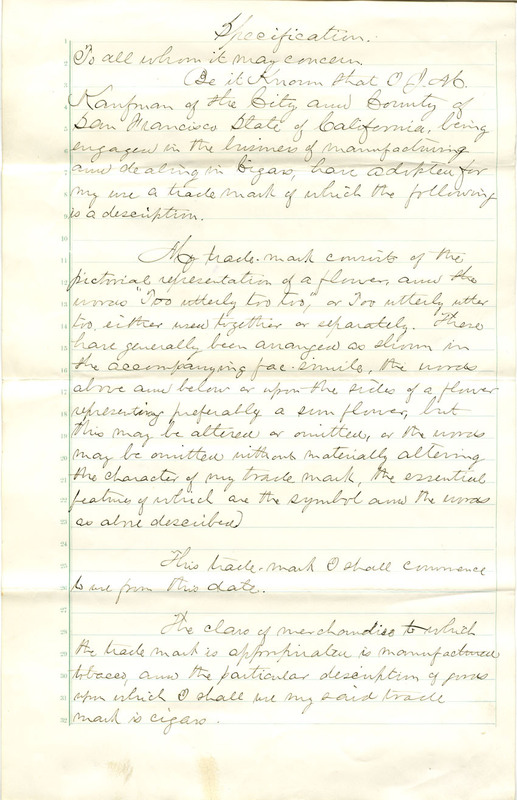 Specification.
1
To all whom it may concern
2
Be it Known that I J. M.
3
Kaufman of the City and County of
San Francisco State of California, being
5
engaged in the business of manufacturing
6
and dealing in Cigars, have adopted for
7
my use a trade mark of which the following
8
is a description.
9
10
My trade-mark consists of the
11
pictorial representation of a flower, and the
12
words "Too utterly too too," or Too utterly utter
13
too, either used together or separately. These
14
have generally been arranged as shown in
15
the accompanying fac-simile, the words
16
above and below or upon the sides of a flower
17
representing preferably a sun flower, but
18
this may be altered or omitted, or the words
19
may be omitted without materially altering
20
the character of my trade mark, the essential
21
features of which are the symbol and the words
22
as above described
23
24
This trade-mark I shall commence
25
to use from this date.
26
27
The class of merchandise to which
28
the trade mark is appropriated is manufactured
29
tobacco, and the particular description of goods
30
upon which I shall use my said trade
31
mark is cigars.
32